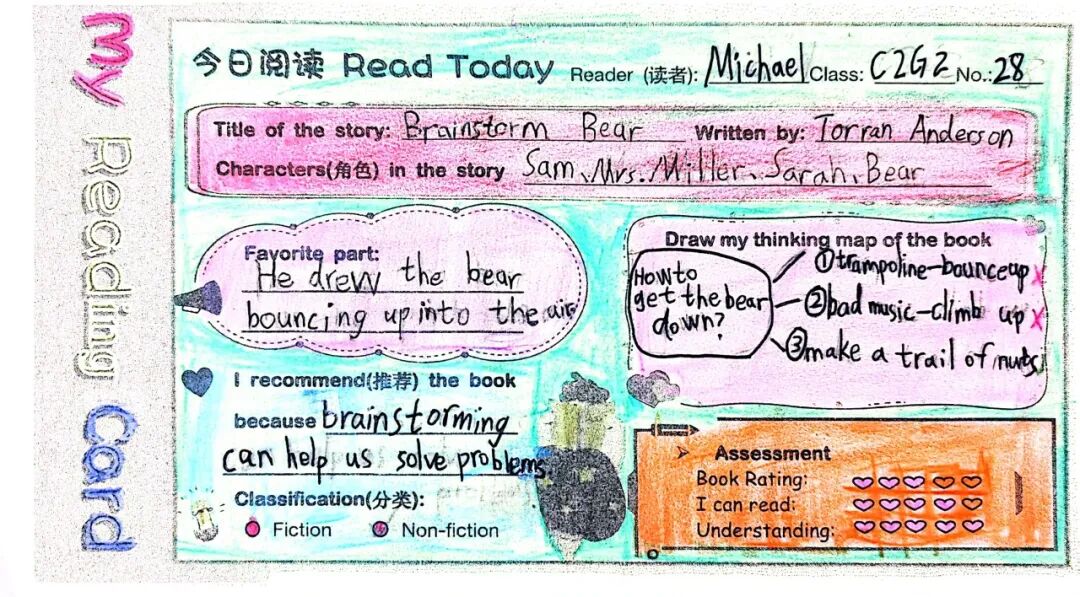 My Reading Card
今日阅读 Read Today Reader (读者): Michael Class: C2G2 No.: 28
Title of the story: Brainstorm Bear Written by: Torran Anderson
Characters(角色) in the story Sam、Mrs.Miller、Sarah、Bear
Favorite part:
He drew the bear
bouncing up into the air
Draw my thinking map of the book
How to
get the bear
down?
①trampoline-bounce up X
②bad music-climb up X
③make a trail of nuts
I recommend(推荐) the book
because brainstorming
can help us solve problems.
Classification(分类):
Fiction Non-fiction
Assessment
Book Rating:
I can read:
Understanding: